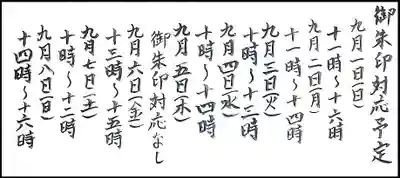 御朱印対応予定
九月一日(日)
十一時〜十六時
九月二日(月)
十一時〜十四時
九月三日(火)
十時〜十三時
九月四日(水)
十時〜十四時
九月五日(木)
御朱印対応なし
九月六日(金)
十三時〜十五時
九月七日(土)
十時〜十二時
九月八日(日)
十四時〜十六時